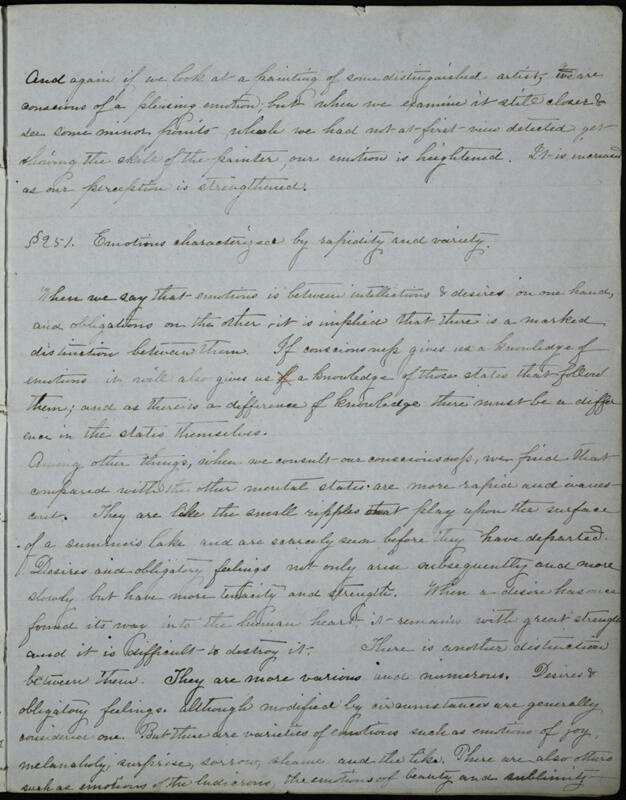 And again if we look at a painting of some distinguished artist, we are
conscious of a pleasing emotion; but when we examine it still closer &
see some minor points which we had not at first view detected yet
showing the skill of the painter our emotion is heightened. It is increased
as our perception is strengthened.
§251. Emotions characterized by rapidity and variety.
When we say that emotions is between intellections & desires on one hand,
and obligations on the other, it is implied that there is a marked
distinction between them. If consciousness gives us a knowledge of
emotions it will also gives us a knowledge of those states that follow
them; and as there is a difference of knowledge there must be a differ
ence in the states themselves.
Among other things, when we consult our consciousness, we find that
compared with the other mental states are more rapid and evanes-
cent. They are like the small ripples that play upon the surface
of a summer's lake and are scarcely seen before they have departed.
Desires and obligatory feelings not only arise subsequently and more
slowly but have more tenacity and strength. When a desire has once
found its way into the human heart, it remains with great strength
and it is difficult to destroy it. There is another distinction
between them. They are more various and numerous. Desires &
obligatory feelings, although modified by circumstances are generally
consider one. But there are varieties of emotions such as emotions of joy,
melancholy, surprise, sorrow, shame and the like. There are also others
such as emotions of the ludicrous, the emotions of beauty and sublimity